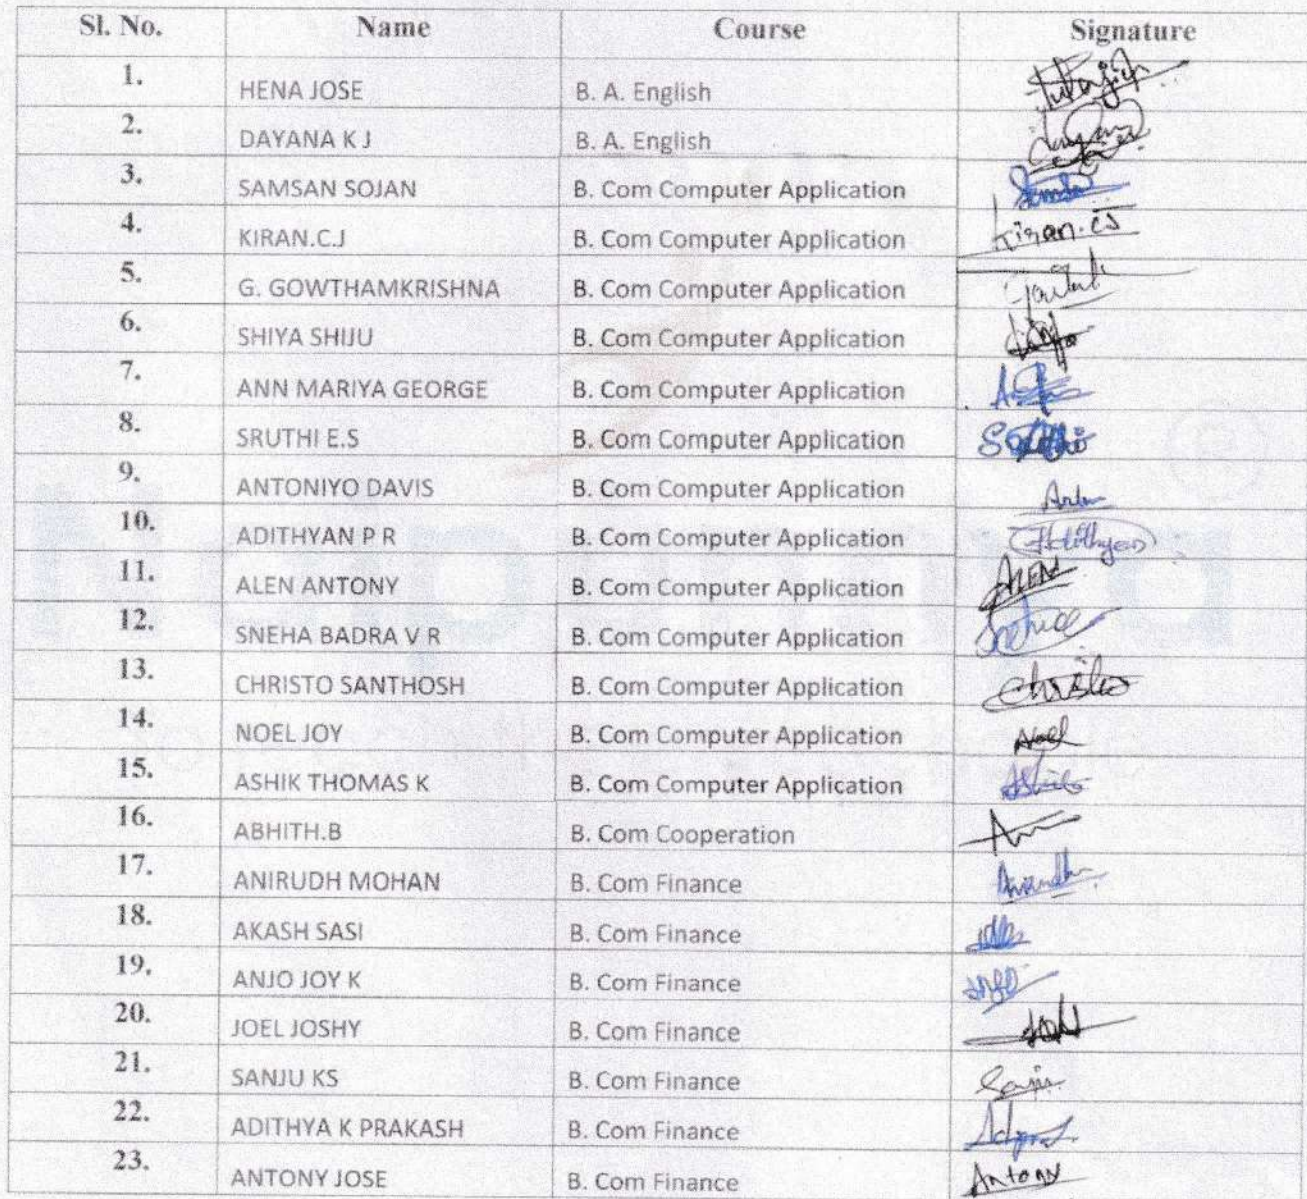 Sl. No. Name Course Signature
1. HENA JOSE B. A. English
2. DAYANA K J B. A. English
3. SAMSAN SOJAN B. Com Computer Application
4. KIRAN.C.J B. Com Computer Application Kiran.CJ
5. G. GOWTHAMKRISHNA B. Com Computer Application
6. SHIYA SHIJU B. Com Computer Application
7. ANN MARIYA GEORGE B. Com Computer Application
8. SRUTHI E.S B. Com Computer Application
9. ANTONIYO DAVIS B. Com Computer Application
10. ADITHYAN P R B. Com Computer Application
11. ALEN ANTONY B. Com Computer Application ALEN
12. SNEHA BADRA V R B. Com Computer Application
13. CHRISTO SANTHOSH B. Com Computer Application Christo
14. NOEL JOY B. Com Computer Application Noel
15. ASHIK THOMAS K B. Com Computer Application
16. ABHITH.B B. Com Cooperation
17. ANIRUDH MOHAN B. Com Finance
18. AKASH SASI B. Com Finance
19. ANJO JOY K B. Com Finance
20. JOEL JOSHY B. Com Finance
21. SANJU KS B. Com Finance
22. ADITHYA K PRAKASH B. Com Finance
23. ANTONY JOSE B. Com Finance Antony